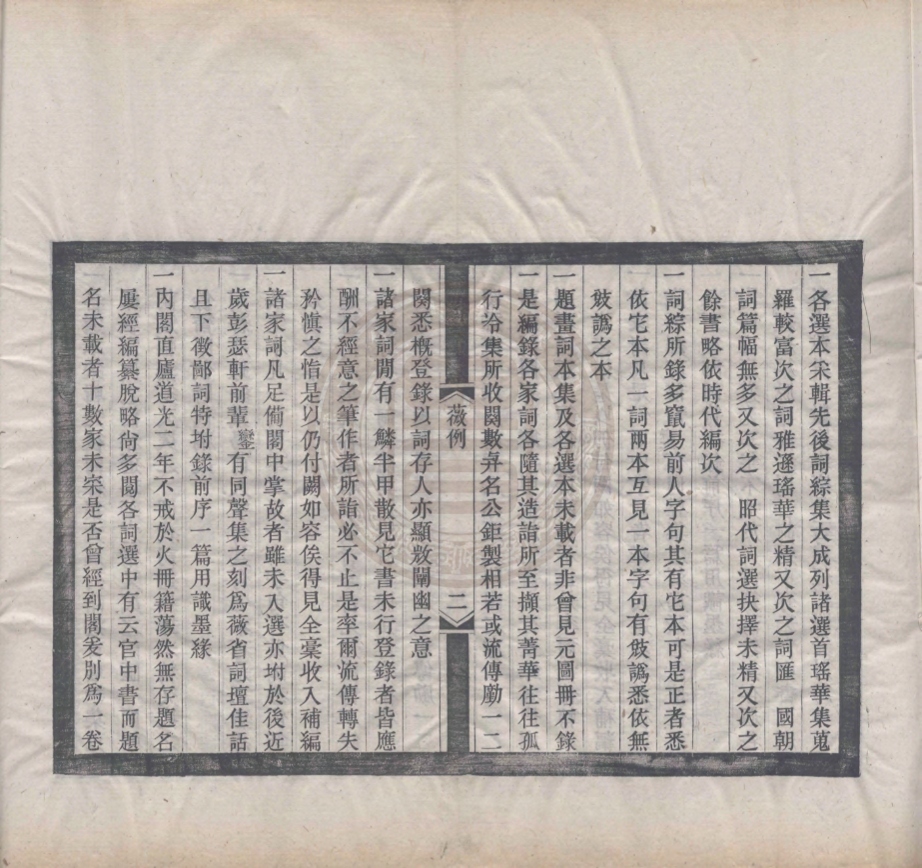 一各選本宋輯先後詞綜集大成列諸選首瑤華集蒐
羅較富次之詞雅遜瑤華之精又次之詞匯　國朝
詞篇幅無多又次之　昭代詞選抉擇未精又次之
餘書略依時代編次
一詞綜所錄多竄易前人字句其有它本可是正者悉
依它本凡一詞兩本互見一本字句有敓譌悉依無
敓譌之本
一題畫詞本集及各選本未載者非曾見元圖冊不錄
一是編錄各家詞各隨其造詣所至擷其菁華往往孤
行冷集所收闋數弆名公鉅製相若或流傳勘一二
薇例
二
闋悉概登錄以詞存人亦顯敚闡幽之意
一諸家詞閒有一鱗半甲散見它書未行登錄者皆應
酬不經意之筆作者所詣必不止是率爾流傳轉失
矜愼之恉是以仍付闕如容俟得見全豪收入補編
一諸家詞凡足備閣中掌故者雖未入選亦坿於後近
歲彭瑟軒前輩鑾有同聲集之刻爲薇省詞壇佳話
且下徵鄙詞特坿錄前序一篇用識墨緣
一內閣直廬道光二年不戒於火冊籍蕩然無存題名
屢經編纂脫略尙多閱各詞選中有云官中書而題
名未載者十數家未宷是否曾經到閣爰別爲一卷